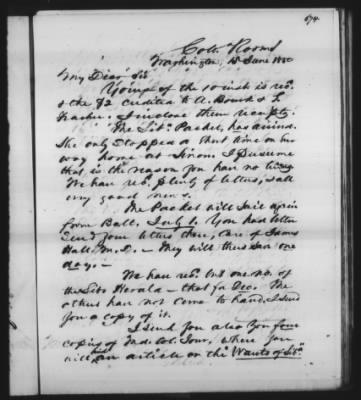 674
Coln. Rooms
Washington, 18 June 1850
My Dear Sir
Yours of the 10 inst. is recd.
& the $2 credited to A. &
. I enclose them receipts.
The Lib. Packet, has arrived.
She only stopped a short time on her
way home at Sinou. I presume
that is the reason you have no
We have recd. plenty of letters, & all
very good news.
The Packet will sail again
from Balt. July 1. You had better
send your letters there, care of James
Hall M.D. – They will thus save one
day. –
We have recd. but one no. of
the Libr Herald – that for Dec. The
others have not come to hand. I send
you a copy of it.
I send you also
copies of Md. Col. Jour., where you
will see an article on the Wants of Liba.